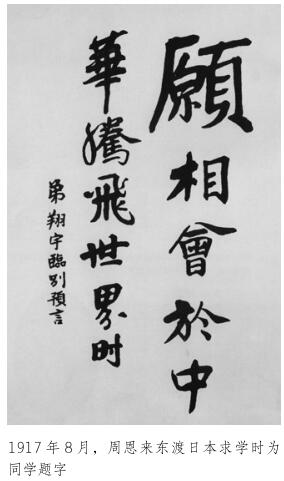 願相會於中
華騰飛世界时
弟翔宇臨别預言
1917年8月，周恩来东渡日本求学时为
同学题字